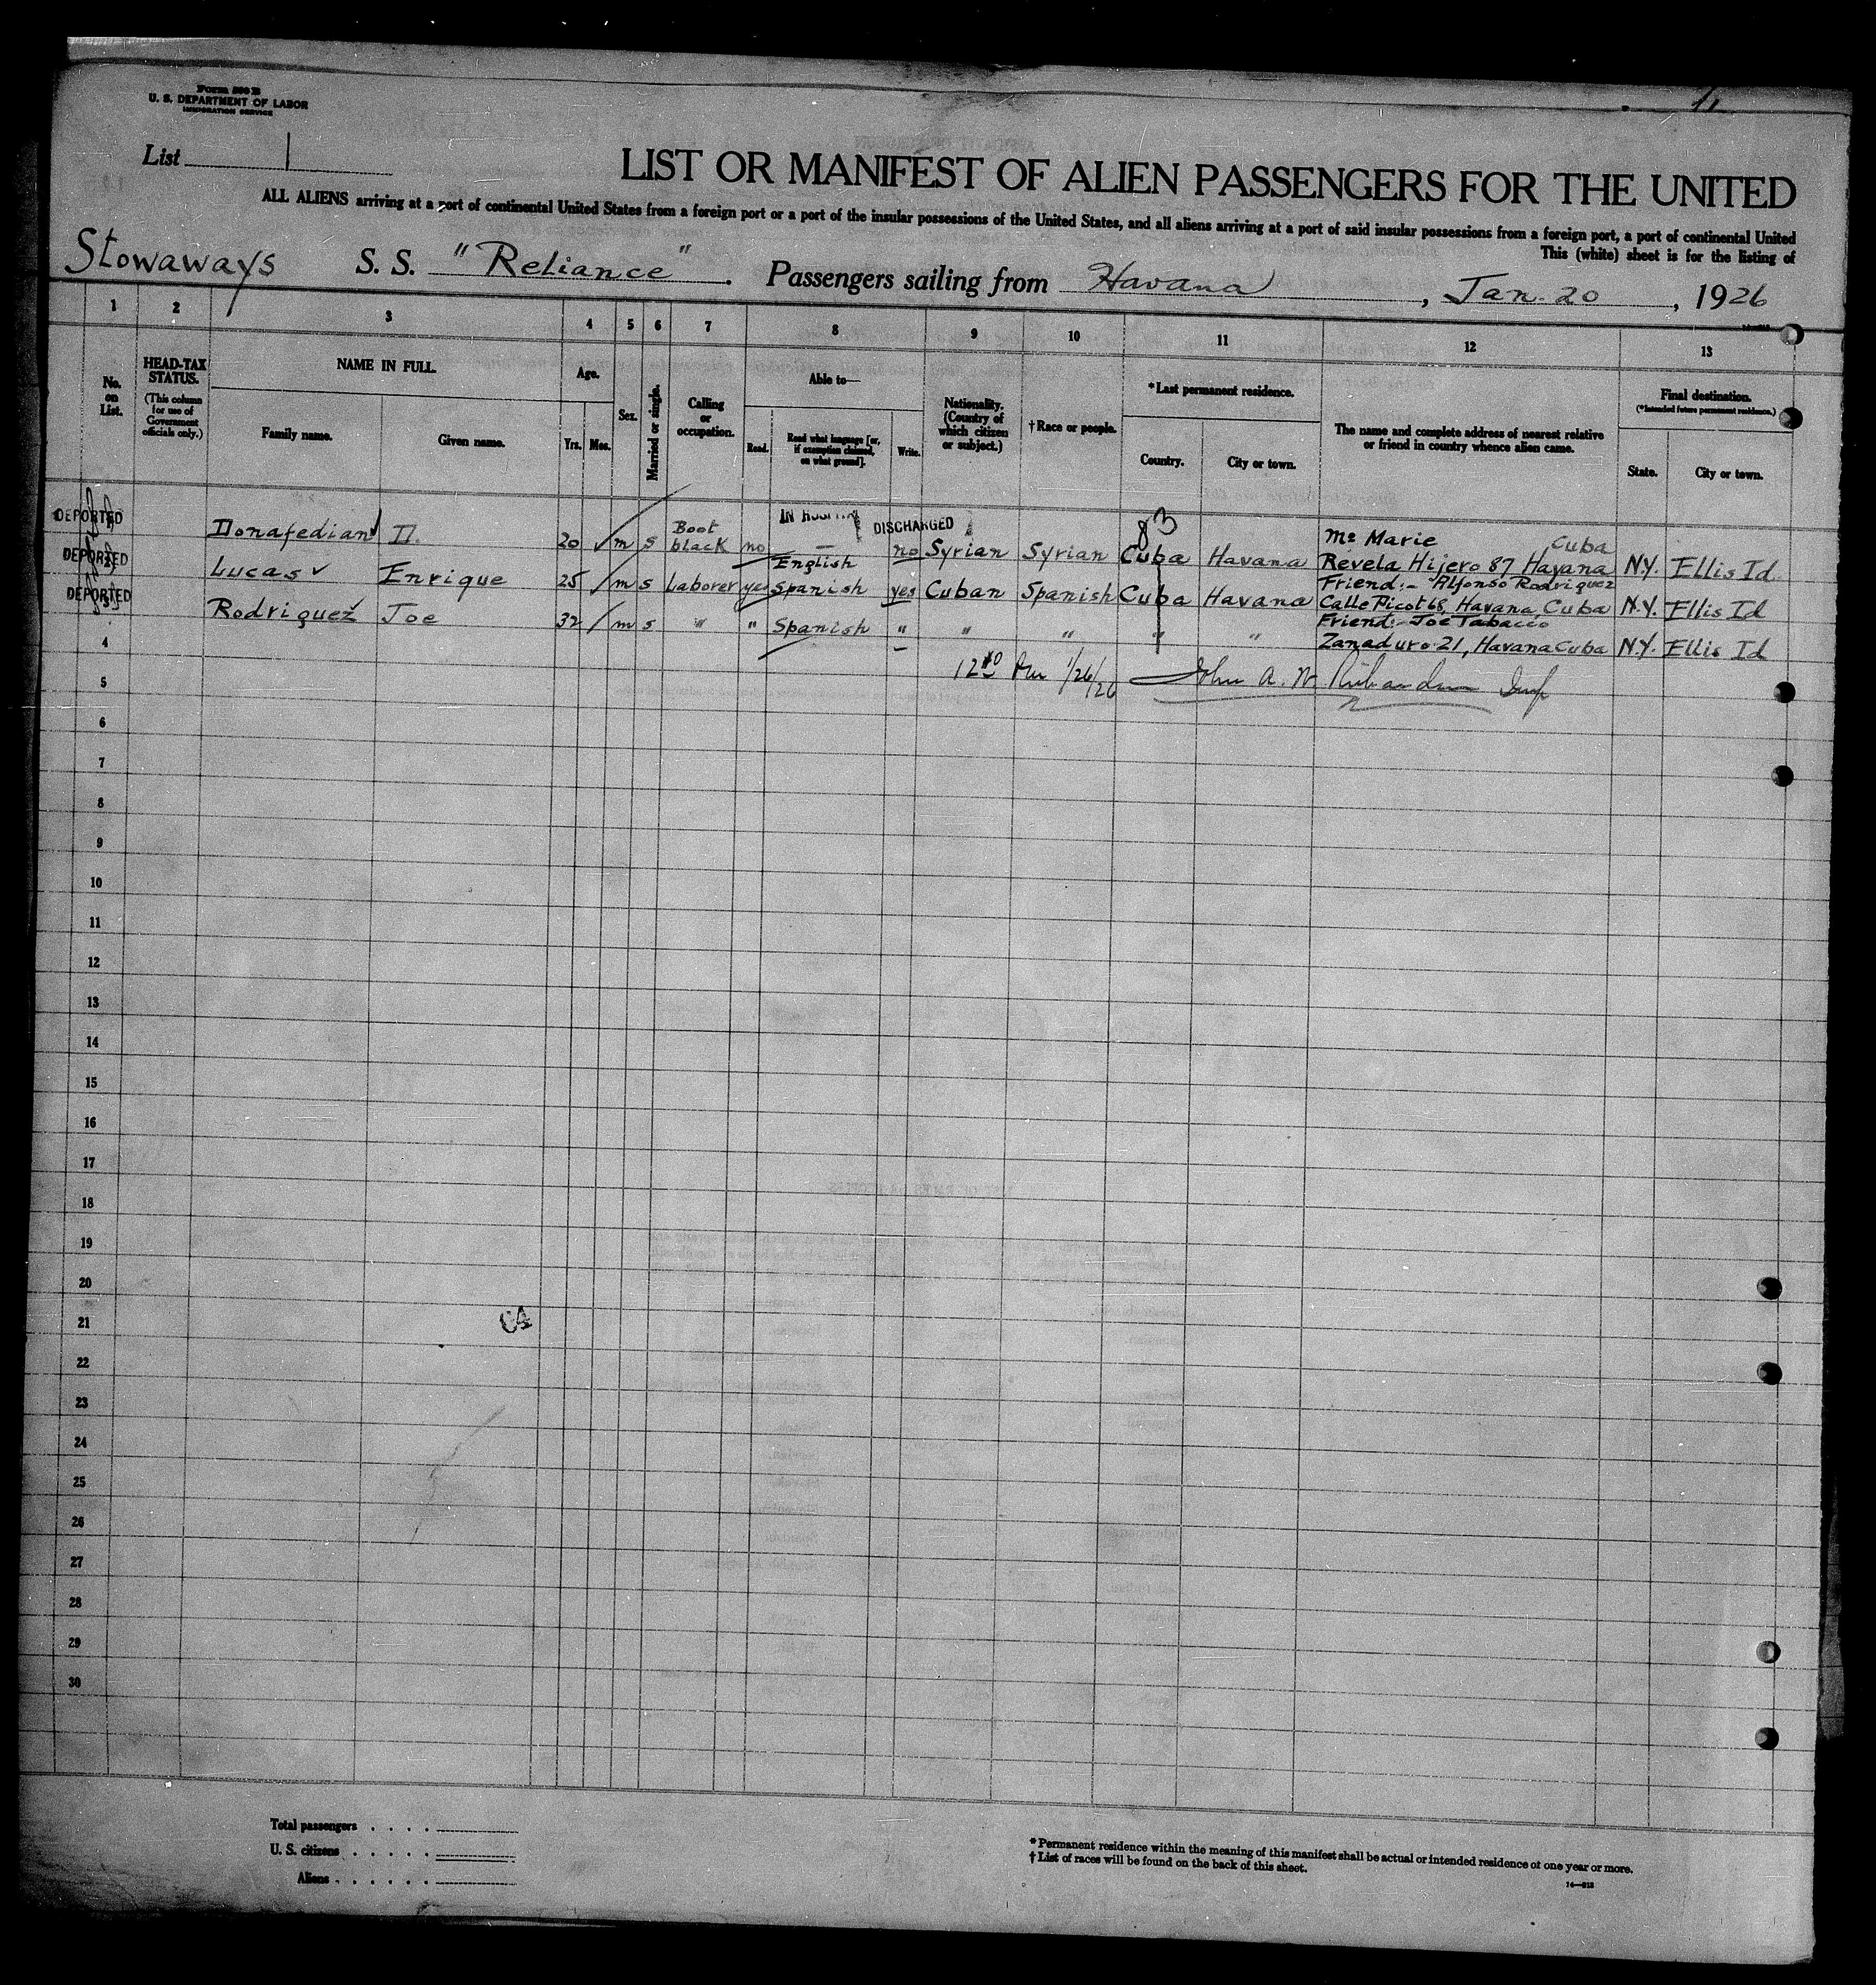 Form 500 B
U. S. DEPARTMENT OF LABOR
IMMIGRATION SERVICE
11
List 1
LIST OR MANIFEST OF ALIEN PASSENGERS FOR THE UNITED
ALL ALIENS arriving at a port of continental United States from a foreign port or a port of the insular possessions of the United States, and all aliens arriving at a port of said insular possessions from a foreign port, a port of continental United
This (white) sheet is for the listing of
Stowaways S. S. "Reliance". Passengers sailing from Havana, Jan. 20, 1926
1 2 3 4 5 6 7 8 9 10 11 12 13
No. on List.
HEAD-TAX STATUS.
(This column for use of Government officials only.)
NAME IN FULL.
Family name. Given name.
Age.
Yrs. Mos.
Sex.
Married or single.
Calling or occupation.
Able to—
Read. Read what language [or, if exemption claimed, on what ground]. Write.
Nationality. (Country of which citizen or subject.)
†Race or people.
*Last permanent residence.
Country. City or town.
The name and complete address of nearest relative or friend in country whence alien came.
Final destination.
(*Intended future permanent residence.)
State. City or town.
IN HOSPITAL DISCHARGED
83
DEPORTED Donafedian D. 20 m s Boot black no — no Syrian Syrian Cuba Havana Mᵉ Marie Cuba
Revela Hijero 87 Havana N.Y. Ellis Id.
DEPORTED Lucas Enrique 25 m s Laborer yes English Spanish yes Cuban Spanish Cuba Havana Friend:- Alfonso Rodriquez
Calle Picot 68, Havana Cuba N.Y. Ellis Id
DEPORTED Rodriquez Joe 32 m s " " Spanish " " " " " Friend:- Joe Tabacco
Zanaduro 21, Havana Cuba N.Y. Ellis Id
4
12 40 Pm 1/26/26 John A. W. Richardson Insp
5
6
7
8
9
10
11
12
13
14
15
16
17
18
19
20
21
22
23
24
25
26
27
28
29
30
Total passengers
U. S. citizens
Aliens
*Permanent residence within the meaning of this manifest shall be actual or intended residence of one year or more.
†List of races will be found on the back of this sheet.
14—213